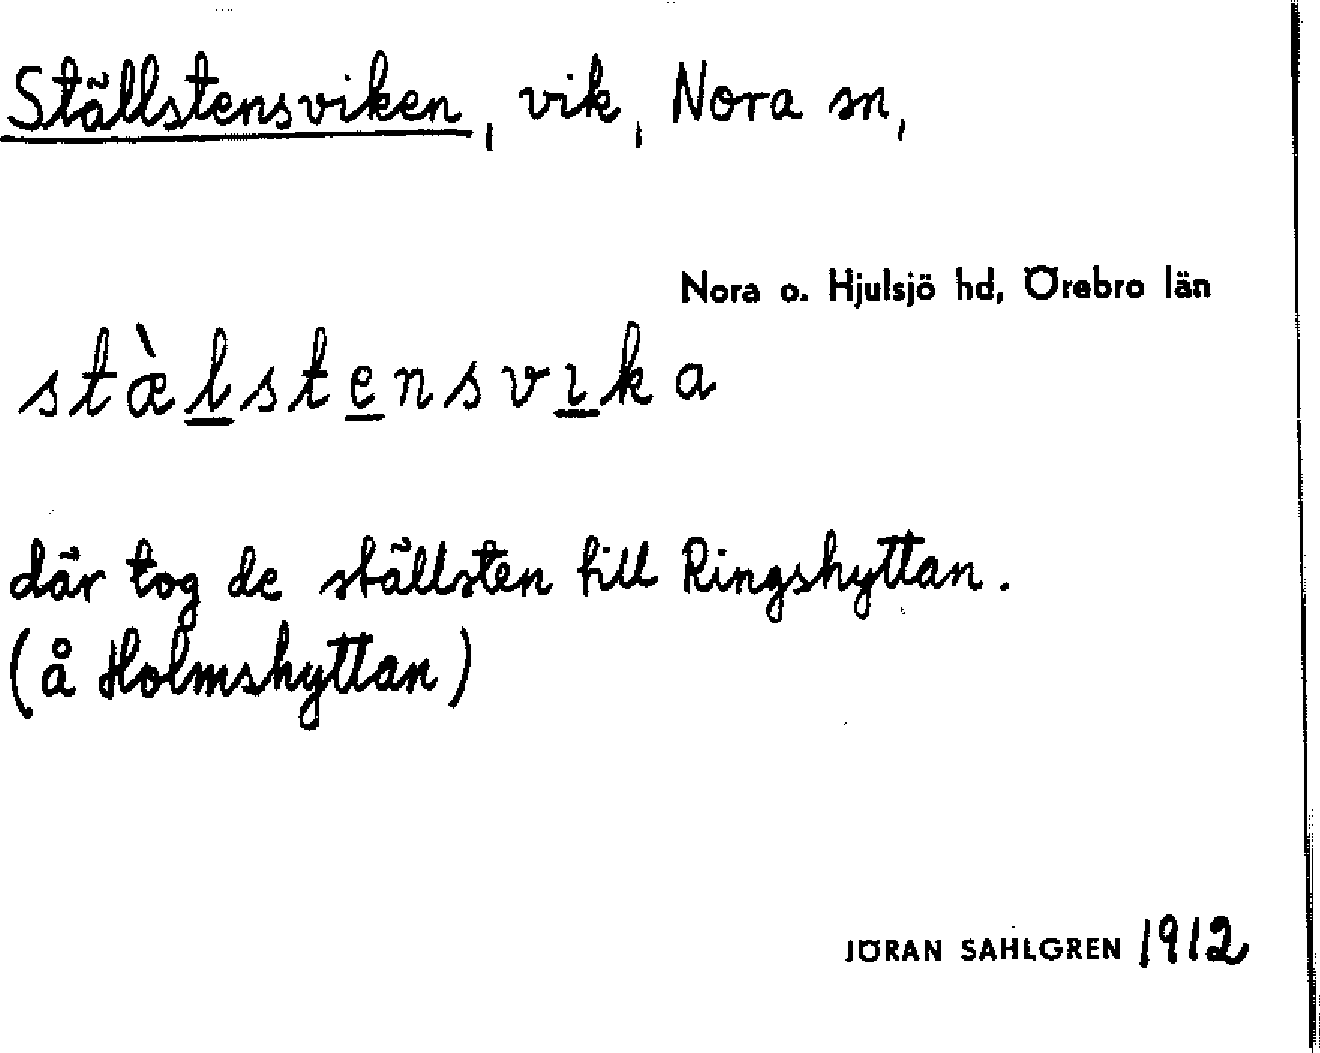 Ställstensviken, vik, Nora sn,
Nora o. Hjulsjö hd, Örebro län
stæ̀l̲ste̲nsvı̲ka
där tog de ställsten till Ringshyttan.
(å Holmshyttan)
JÖRAN SAHLGREN 1912